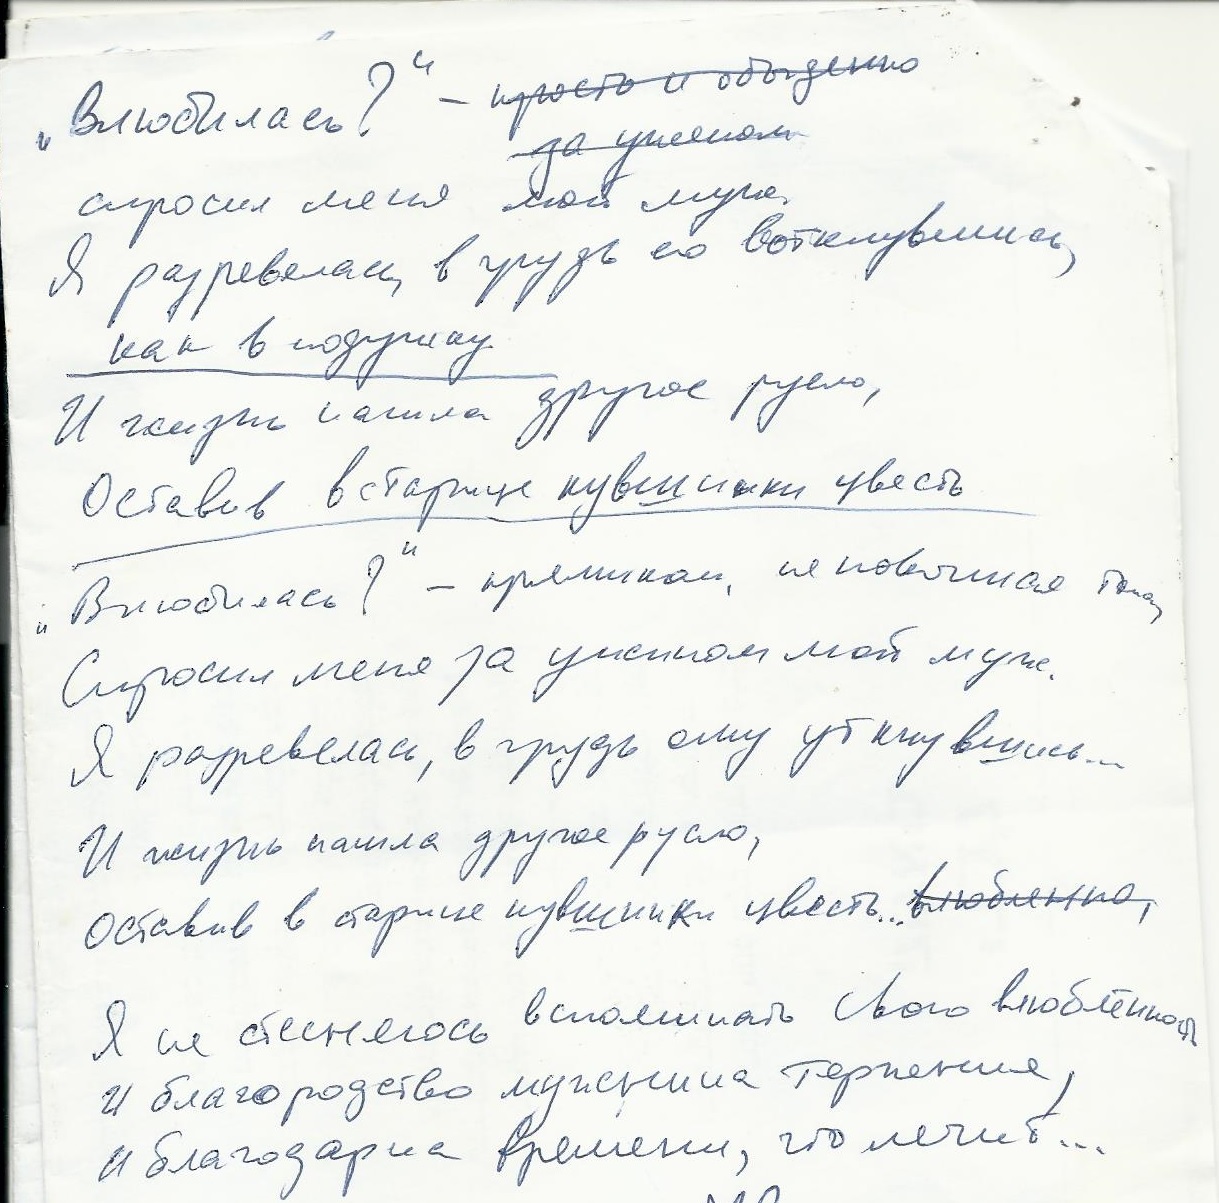 „Влюбилась?“ – просто и обыденно
за ужином
спросил меня мой муж.
Я разревелась, в грудь его воткнувшись,
как в подушку
И жизнь нашла другое русло,
Оставив в старице кувшинки цвесть
„Влюбилась?“ – прямиком, не повышая тона,
Спросил меня за ужином мой муж.
Я разревелась, в грудь ему уткнувшись...
И жизнь нашла другое русло,
Оставив в старице кувшинки цвесть... влюбленно,
Я не стесняюсь вспоминать свою влюблённость
И благородство мужнина терпения,
И благодарна времени, что лечит...